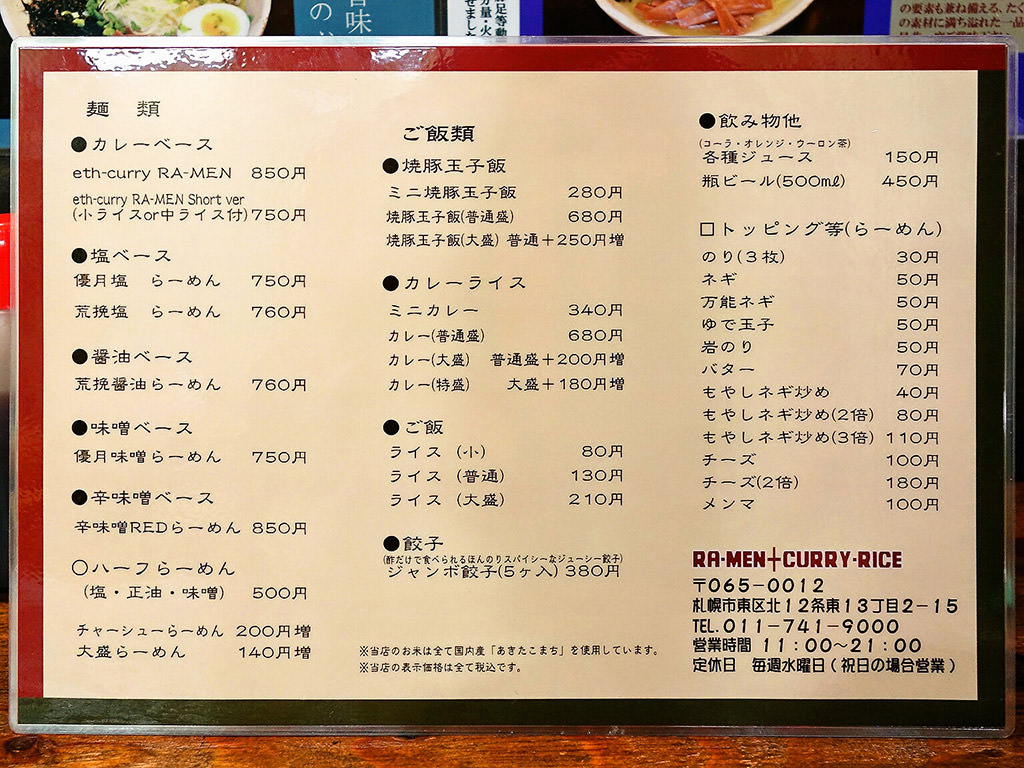 麺　類
●カレーベース
eth-curry RA-MEN 850円
eth-curry RA-MEN Short ver
(小ライスor中ライス付)750円
●塩ベース
優月塩　らーめん 750円
荒挽塩　らーめん 760円
●醤油ベース
荒挽醤油らーめん 760円
●味噌ベース
優月味噌らーめん 750円
●辛味噌ベース
辛味噌REDらーめん 850円
○ハーフらーめん
(塩・正油・味噌) 500円
チャーシューらーめん 200円増
大盛らーめん 140円増
ご飯類
●焼豚玉子飯
ミニ焼豚玉子飯 280円
焼豚玉子飯(普通盛) 680円
焼豚玉子飯(大盛) 普通+250円増
●カレーライス
ミニカレー 340円
カレー(普通盛) 680円
カレー(大盛) 普通盛+200円増
カレー(特盛) 大盛+180円増
●ご飯
ライス (小) 80円
ライス (普通) 130円
ライス (大盛) 210円
●餃子
(酢だけで食べられるほんのりスパイシーなジューシー餃子)
ジャンボ餃子(5ヶ入) 380円
※当店のお米は全て国内産「あきたこまち」を使用しています。
※当店の表示価格は全て税込です。
●飲み物他
(コーラ・オレンジ・ウーロン茶)
各種ジュース 150円
瓶ビール(500ml) 450円
□トッピング等(らーめん)
のり(3枚) 30円
ネギ 50円
万能ネギ 50円
ゆで玉子 50円
岩のり 50円
バター 70円
もやしネギ炒め 40円
もやしネギ炒め(2倍) 80円
もやしネギ炒め(3倍) 110円
チーズ 100円
チーズ(2倍) 180円
メンマ 100円
RA-MEN+CURRY-RICE
〒065-0012
札幌市東区北12条東13丁目2-15
TEL.011-741-9000
営業時間 11:00～21:00
定休日　毎週水曜日(祝日の場合営業)